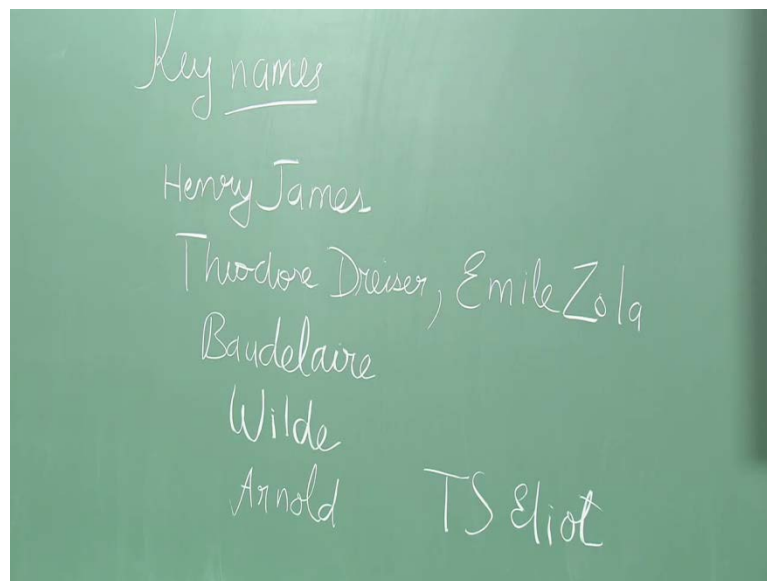 Key names
Henry James
Theodore Dreiser, Emile Zola
Baudelaire
Wilde
Arnold TS Eliot